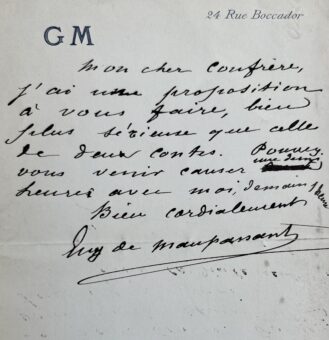 24 Rue Boccador
GM
Mon cher confrère,
j'ai une proposition
à vous faire, bien
plus sérieuse que celle
de deux contes. Pouvez
vous venir causer une demi
heure avec moi, demain
Bien cordialement
Guy de Maupassant